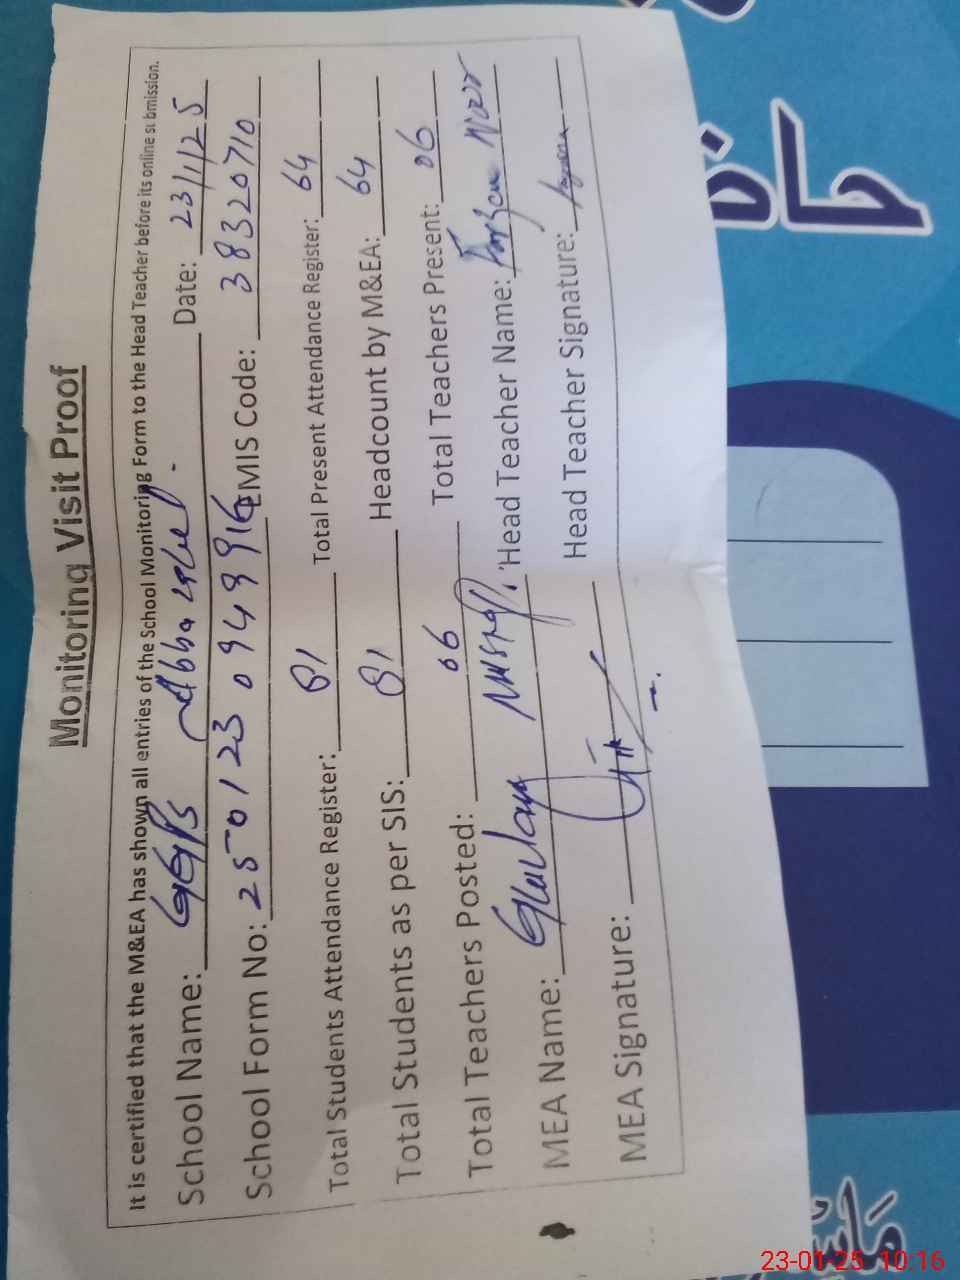 Monitoring Visit Proof
It is certified that the M&EA has shown all entries of the School Monitoring Form to the Head Teacher before its online submission.
School Name: GGPS Date: 23/1/25
School Form No: 250123 0949916 EMIS Code: 38320710
Total Students Attendance Register: 81 Total Present Attendance Register: 64
Total Students as per SIS: 81 Headcount by M&EA: 64
Total Teachers Posted: 06 Total Teachers Present: 06
MEA Name: Ghulam Head Teacher Name:
MEA Signature: Head Teacher Signature:
23-01-25 10:16